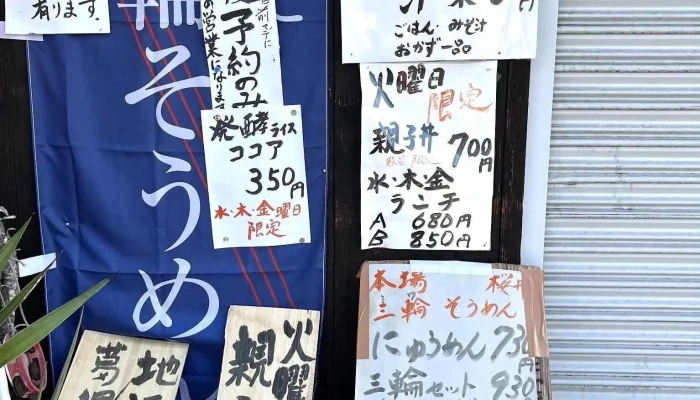 有ります
輪
そうめ
予約のみ
の営業になります
発酵ライス
ココア
350円
水・木・金曜日
限定
ごはん・みそ汁
おかず一品
火曜日
限定
親子丼
700円
数量限定
水・木・金
ランチ
A 680円
B 850円
本場 桜井
三輪 そうめん
にゅうめん 730
三輪セット 930
火曜
親
地
葛